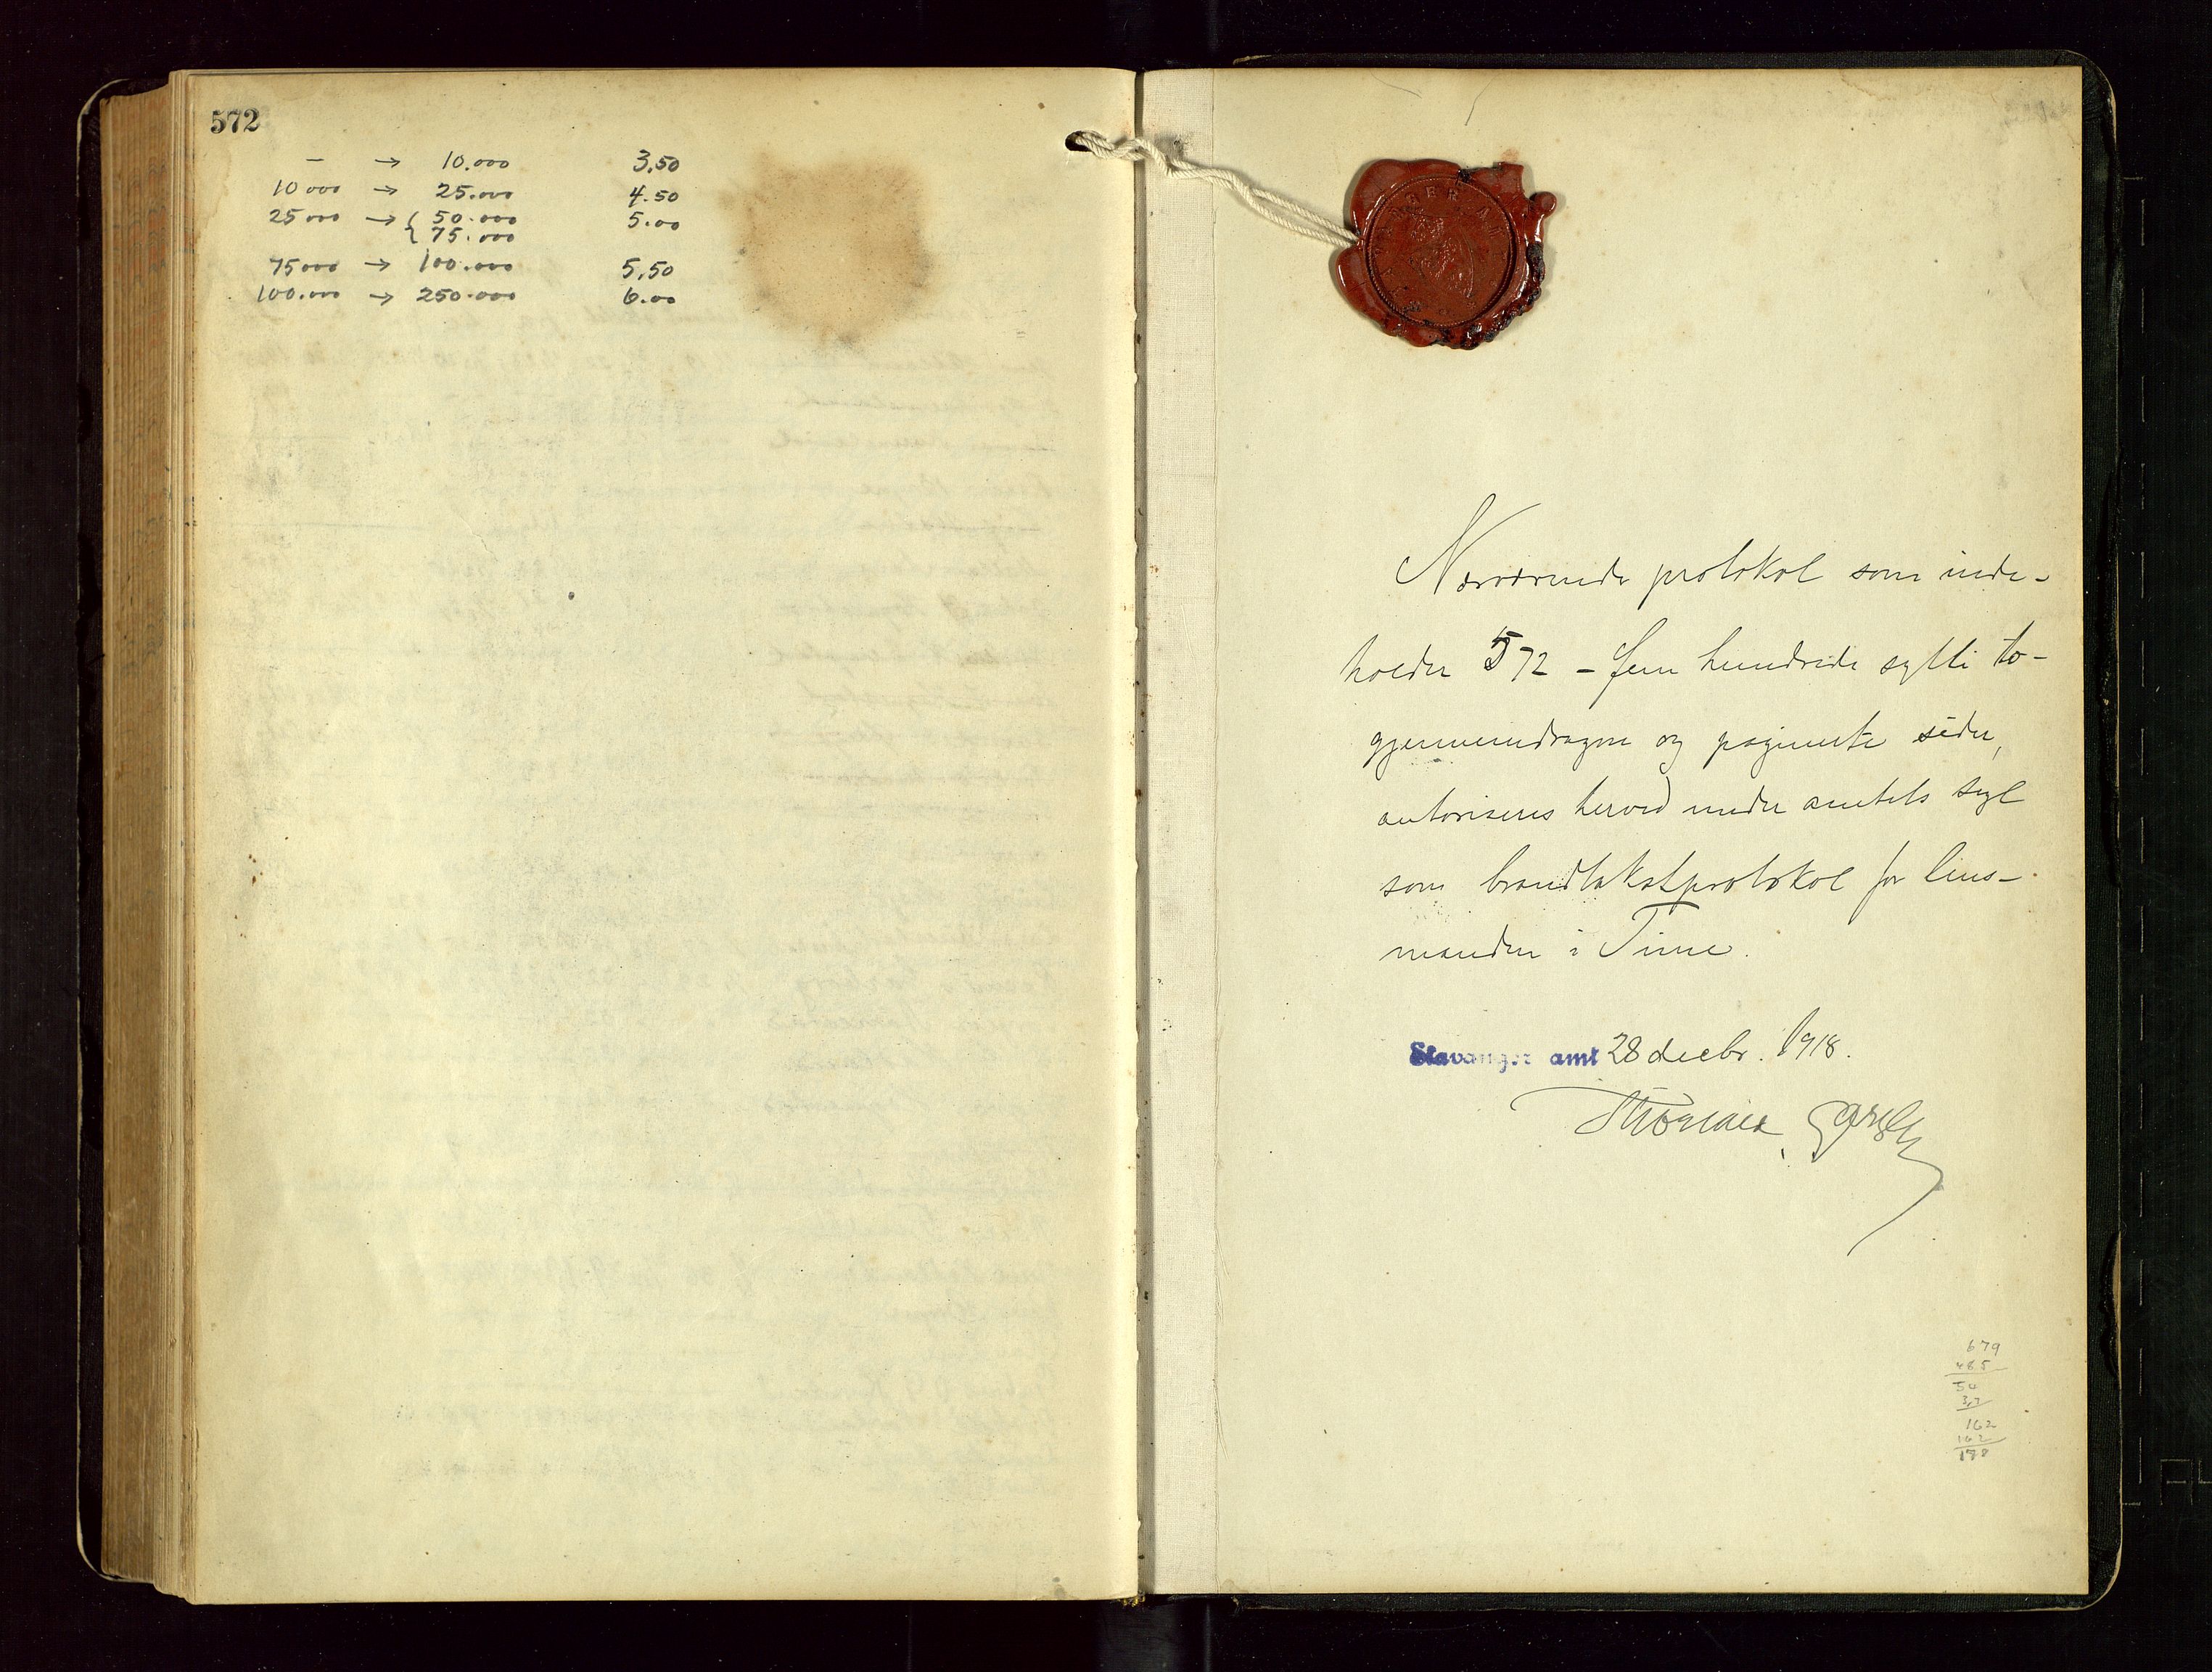 572
– → 10.000 3,50
10000 → 25.000 4.50
25000 → { 50.000 5.00
{ 75.000
75000 → 100.000 5,50
100.000 → 250.000 6.00
STAVANGER AMT
Nærværende protokol som inde-
holder 572 – fem hundrede sytti to –
gjennemdragne og paginerte sider,
autoriseres herved under amtets segl
som brandtakstprotokol for lens-
manden i Time.
Stavanger amt 28 decbr. 1918.
679
485
54
3,3
162
162
178